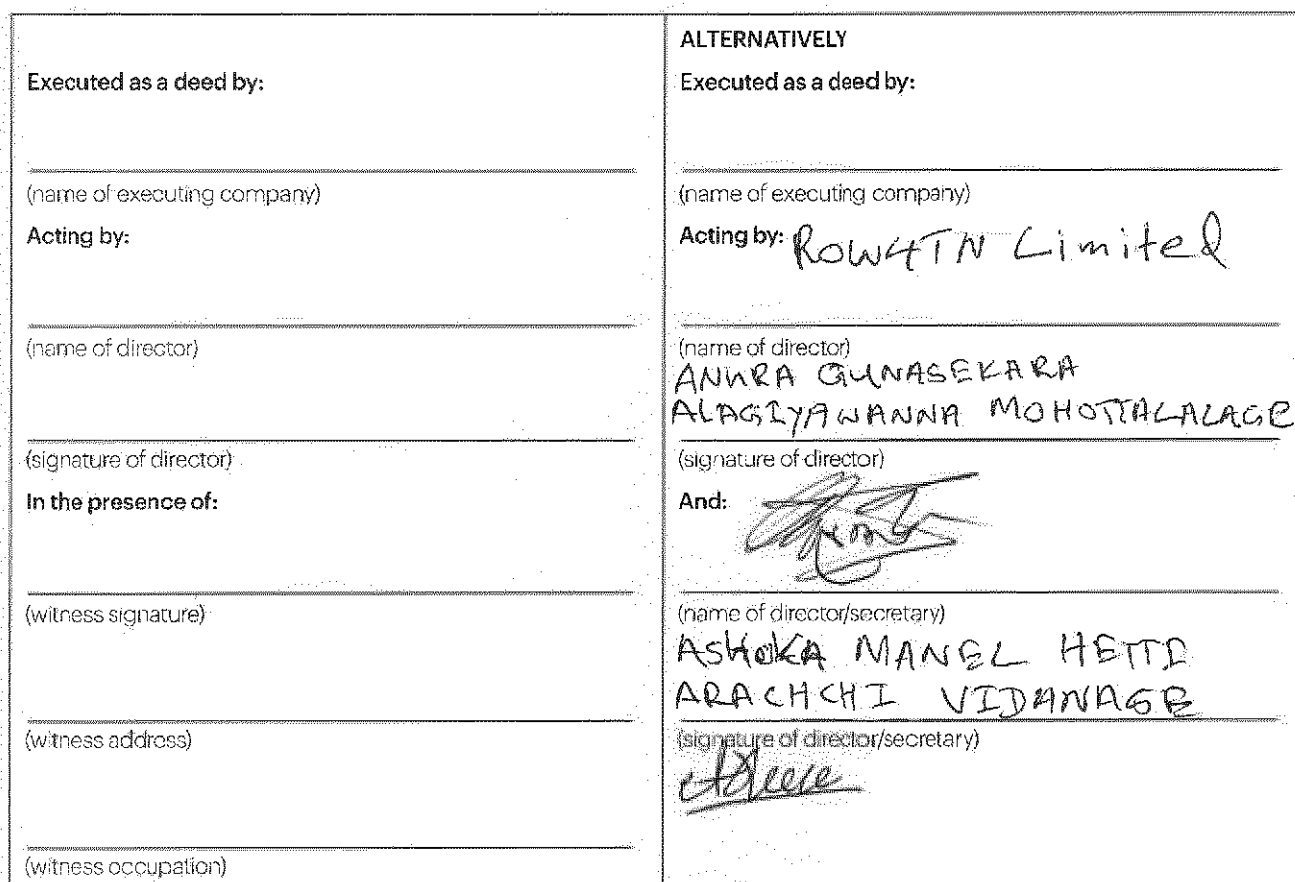 Executed as a deed by:
(name of executing company)
Acting by:
(name of director)
(signature of director)
In the presence of:
(witness signature)
(witness address)
(witness occupation)
ALTERNATIVELY
Executed as a deed by:
(name of executing company)
Acting by: ROW4TN Limited
(name of director)
ANURA GUNASEKARA
ALAGIYAWANNA MOHOTTALALAGE
(signature of director)
And:
(name of director/secretary)
ASHOKA MANEL HETTI
ARACHCHI VIDANAGE
(signature of director/secretary)